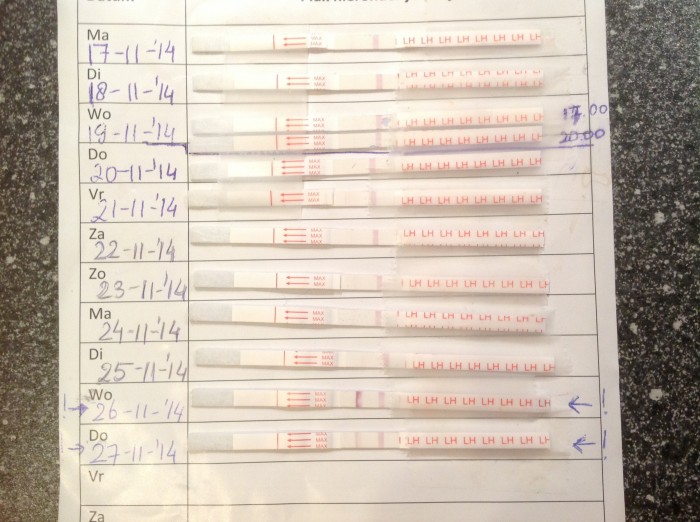 Datum
Ma
17-11-'14
MAX
MAX
LH LH LH LH LH LH LH LH
Di
18-11-'14
MAX
MAX
LH LH LH LH LH LH LH LH
Wo
19-11-'14
MAX
MAX
LH LH LH LH LH LH LH LH
17.00
MAX
MAX
LH LH LH LH LH LH LH LH
20.00
Do
20-11-'14
MAX
MAX
LH LH LH LH LH LH LH LH
Vr
21-11-'14
MAX
MAX
MAX
LH LH LH LH LH LH LH LH
Za
22-11-'14
MAX
MAX
MAX
LH LH LH LH LH LH LH LH
Zo
23-11-'14
MAX
MAX
MAX
LH LH LH LH LH LH LH LH
Ma
24-11-'14
MAX
MAX
LH LH LH LH LH LH LH LH
Di
25-11-'14
MAX
MAX
MAX
LH LH LH LH LH LH LH LH
Wo
! → 26-11-'14
MAX
MAX
MAX
LH LH LH LH LH LH LH LH
← !
Do
→ 27-11-'14
MAX
MAX
MAX
LH LH LH LH LH LH LH LH
← !
Vr
Za